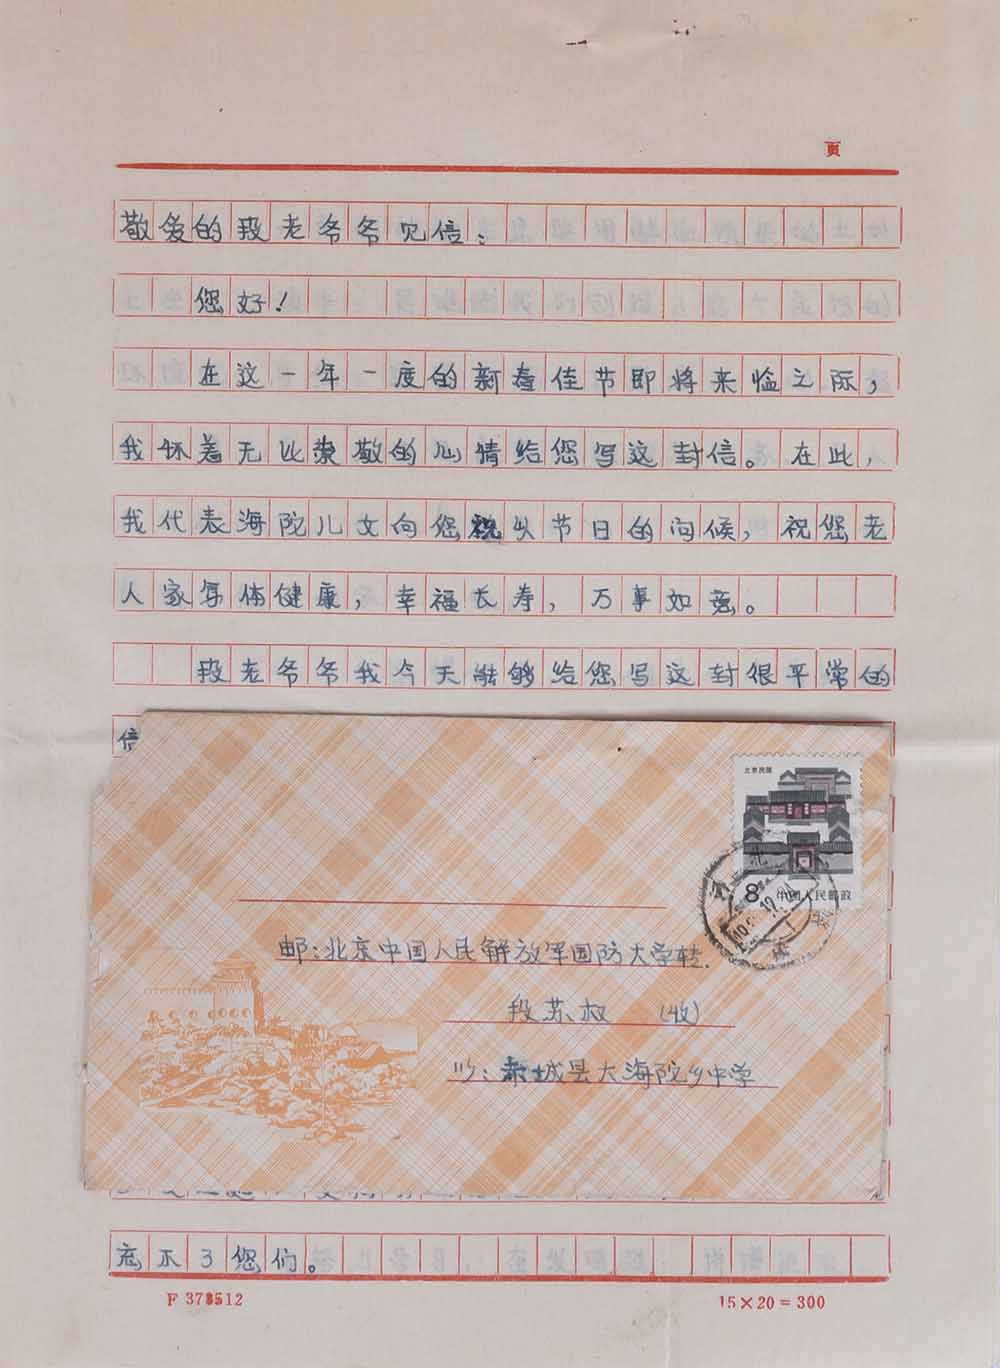 页
敬爱的段老爷爷见信：
您好！
在这一年一度的新春佳节即将来临之际，
我怀着无比崇敬的心情给您写这封信。在此，
我代表海陀儿女向您祝以节日的问候，祝您老
人家身体健康，幸福长寿，万事如意。
段老爷爷我今天能够给您写这封很平常的
信
北京民居
8 中国人民邮政
河北
邮：北京中国人民解放军国防大学转.
段苏权 (收)
赤城县大海陀乡中学
忘不了您们。
F 378512
15×20=300